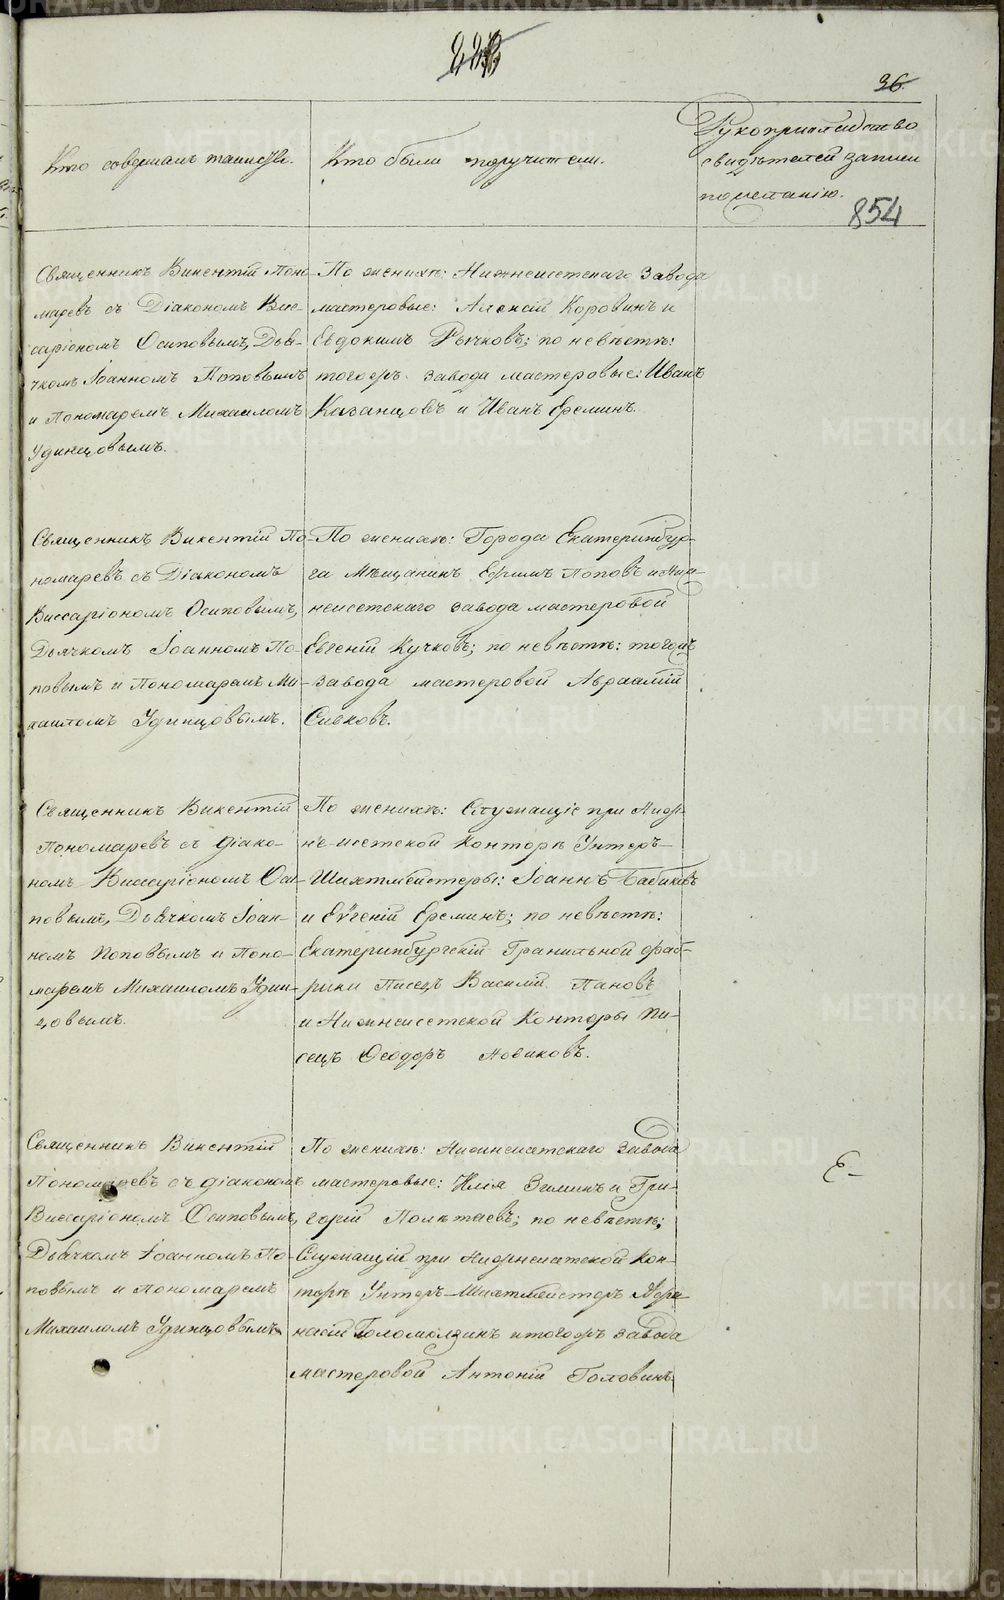 36.
Кто совершалъ таинство.
Кто были поручители.
Рукоприкладство
свидѣтелей записи
по желанію.
854
Священникъ Викентій Поно-
маревъ съ Діакономъ Вис-
саріономъ Осиповымъ, Дья-
чкомъ Іоанномъ Поповымъ
и Пономаремъ Михаиломъ
Удинцовымъ.
По женихѣ: Нижнеисетскаго Завода
мастеровые: Алексій Коровинъ и
Евдокимъ Рычковъ; по невѣстѣ:
тогожъ завода мастеровые: Иванъ
Казанцовъ и Иванъ Ереминъ.
Священникъ Викентій По-
номаревъ съ Діакономъ
Виссаріономъ Осиповымъ,
Дьячкомъ Іоанномъ По-
повымъ и Пономаремъ Ми-
хаиломъ Удинцовымъ.
По женихѣ: Города Екатеринбур-
га Мѣщанинъ Ефимъ Поповъ и Ниж-
неисетскаго завода мастеровой
Евгеній Кучковъ; по невѣстѣ: тогожъ
завода мастеровой Авраамій
Сивковъ.
Священникъ Викентій
Пономаревъ съ діако-
номъ Виссаріономъ Оси-
повымъ, Дьячкомъ Іоан-
номъ Поповымъ и Поно-
маремъ Михаиломъ Удин-
цовымъ.
По женихѣ: Служащіе при Ниж-
нѣ-исетской Конторѣ Унтеръ-
Шихтмейстеры: Іоаннъ Бабиковъ
и Евгеній Ереминъ; по невѣстѣ:
Екатеринбургскій Гранильной фаб-
рики Писецъ Василій Пановъ
и Нижнеисетской Конторы Пи-
сецъ Ѳеодоръ Новиковъ.
Священникъ Викентій
Пономаревъ съ діакономъ
Виссаріономъ Осиповымъ,
Дьячкомъ Іоанномъ По-
повымъ и Пономаремъ
Михаиломъ Удинцовымъ
По женихѣ: Нижнеисетскаго Завода
мастеровые: Илія Зиминъ и Гри-
горій Полѣтаевъ; по невѣстѣ:
Служащій при Нижнеисетской Кон-
торѣ Унтеръ-Шихтмейстеръ Аѳа-
насій Голомолзинъ и тогожъ завода
мастеровой Антоній Головинъ.
METRIKI.GASO-URAL.RU